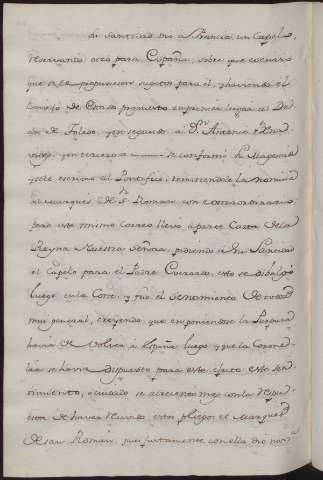 su Santidad dio a Francia un Capelo,
reservando otro para España, sobre que escrivio
que se le propusiesen sugetos para el, y haviendo el
Consejo de Estado propuesto en primer lugar al De
an de Toledo, y en segundo a Dn. Antonio
y en tercero a se conformo S. Magestad
y se le escrivio al Pontifice, remitiendo la nomina
al Marques de S. Roman con extraordinario
pero este mismo correo llevo a parte Carta de la
Reyna Nuestra Señora, pidiendo a su Santidad
el Capelo para el Padre Everardo, esto se divulgó
luego en la Corte, y fue el sentimiento de todos
muy general, creyendo que en poniendose la Purpura
havia de volver a España luego, y que la
se havia dispuesto para esto este sen
timiento, o cuidado se acrecento mas con la respu
esta de haver recivido estos pliegos el Marques
de San Roman, pues juntamente con ella dio noti